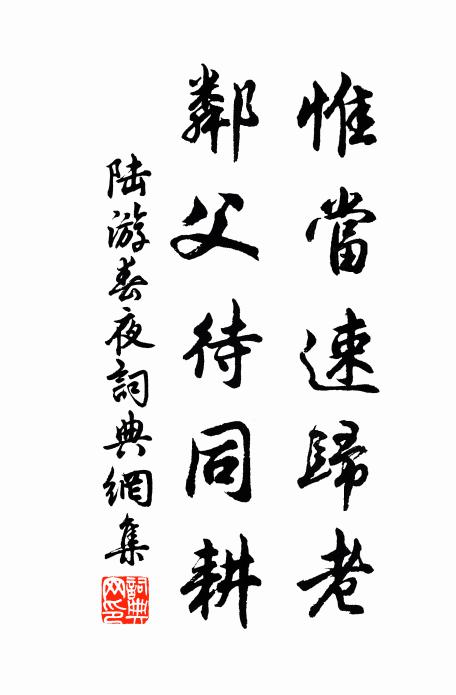 惟當速歸老
鄰父待同耕
陸游春夜詞典網集
詞典网印